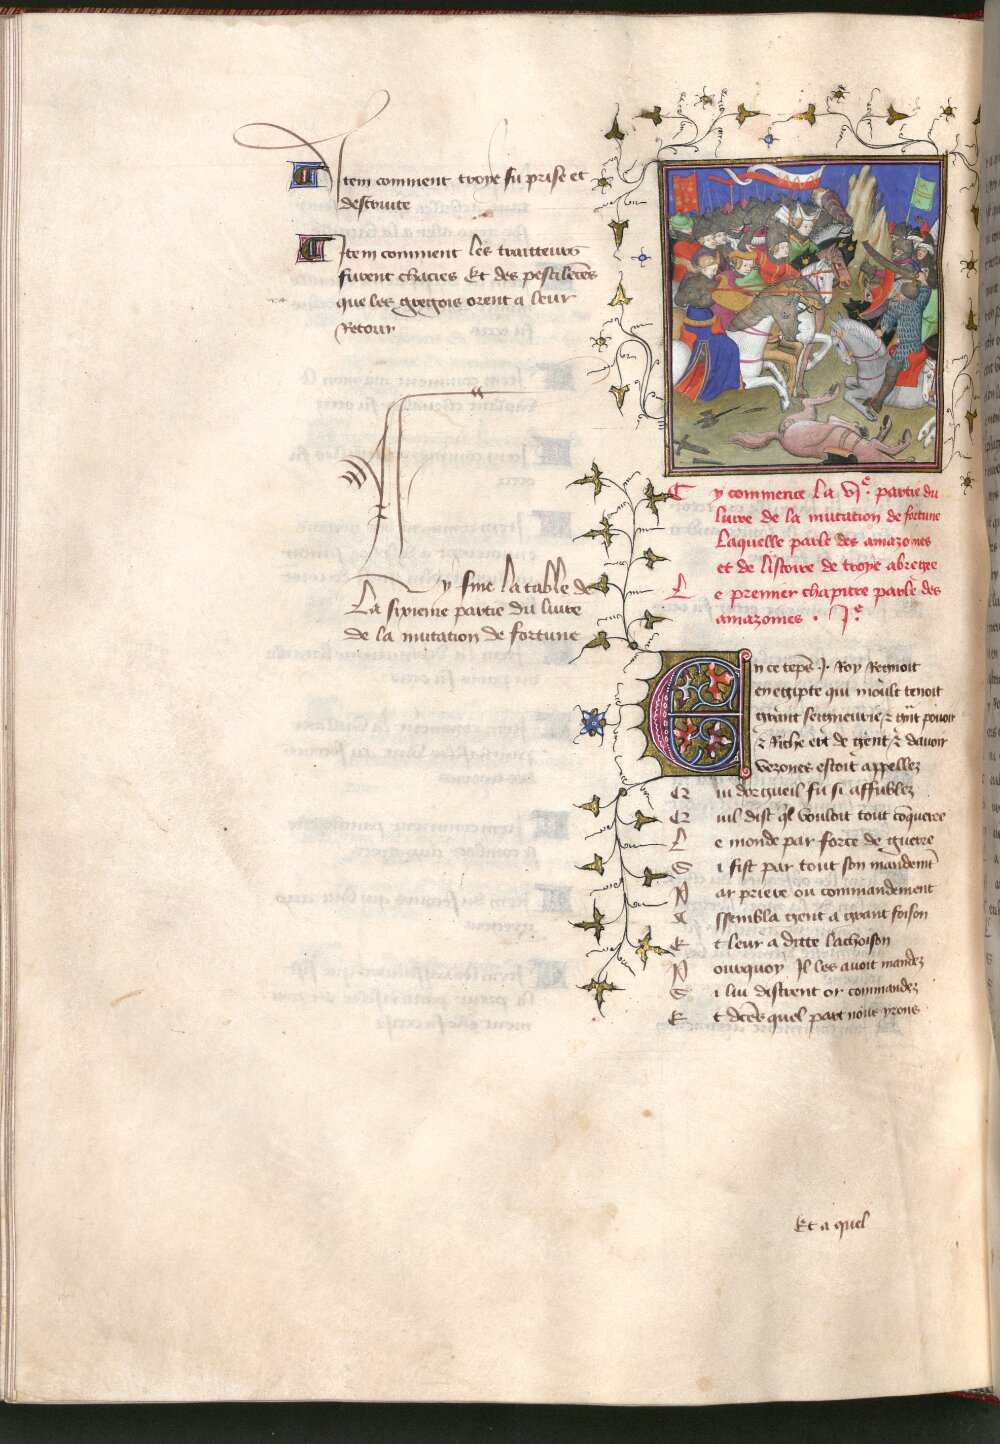 Item comment troye fu prise et
destruite
Item comment les traitteurs
furent chacies Et des pestilẽces
que les gregois orent a leur
Retour
Cy fine la table de
La sixieme partie du livre
de la mutation de fortune
Cy commence La vjᵉ. partie du
livre de la mutation de fortune
Laquelle parle des amazones
et de listoire de troye abregee
Le premier chapitre parle des
amazones . jᵉ.
En ce tẽps .j. Roy Regnoit
en egipte qui moult tenoit
grant seigneurie ⁊ grãt pouoir
⁊ Riche ert de gent ⁊ davoir
Vezones estoit appellez
Qui dorgueil fu si affublez
Quil dist ql̃ vouloit tout cõquerre
Le monde par force de guerre
Si fist par tout son mandemẽt
Par priere ou commandement
Assembla gent a grant foison
Et leur a ditte lachoison
Pourquoy Il les avoit mandez
Si lui distrent or commandez
Et dictes quel part nous yrons
Et a quel